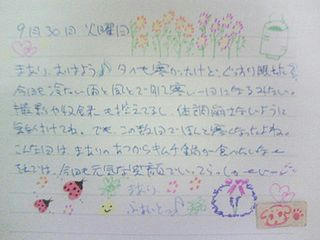 9月30日 火曜日
まおり、おはよう♪ 夕べも寒かったけど、ぐっすり眠れた?
今日も冷たい雨と風とで肌寒い一日になるみたい。
撮影や収録も控えてるし、体調崩さないように
気を付けてね。でも、この数日でほんと寒くなったよね。
こんな日は、まおりのあつあつキムチ鍋が食べたいなぁ
では、今日も元気な笑顔でいってらっしゃ〜い
まおり
ふぁいとっ♪